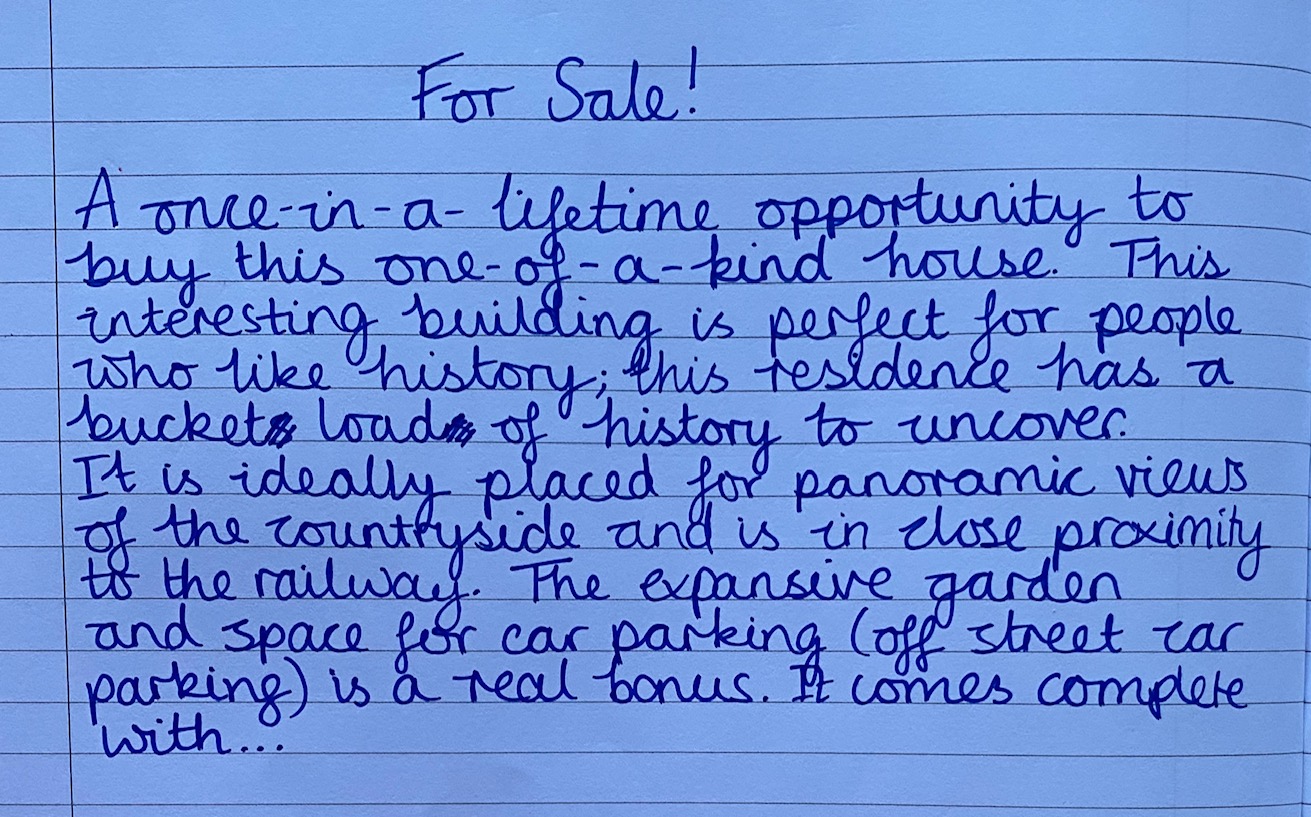 For Sale!
A once-in-a-lifetime opportunity to
buy this one-of-a-kind house. This
interesting building is perfect for people
who like history; this residence has a
bucket load of history to uncover.
It is ideally placed for panoramic views
of the countryside and is in close proximity
to the railway. The expansive garden
and space for car parking (off street car
parking) is a real bonus. It comes complete
with...